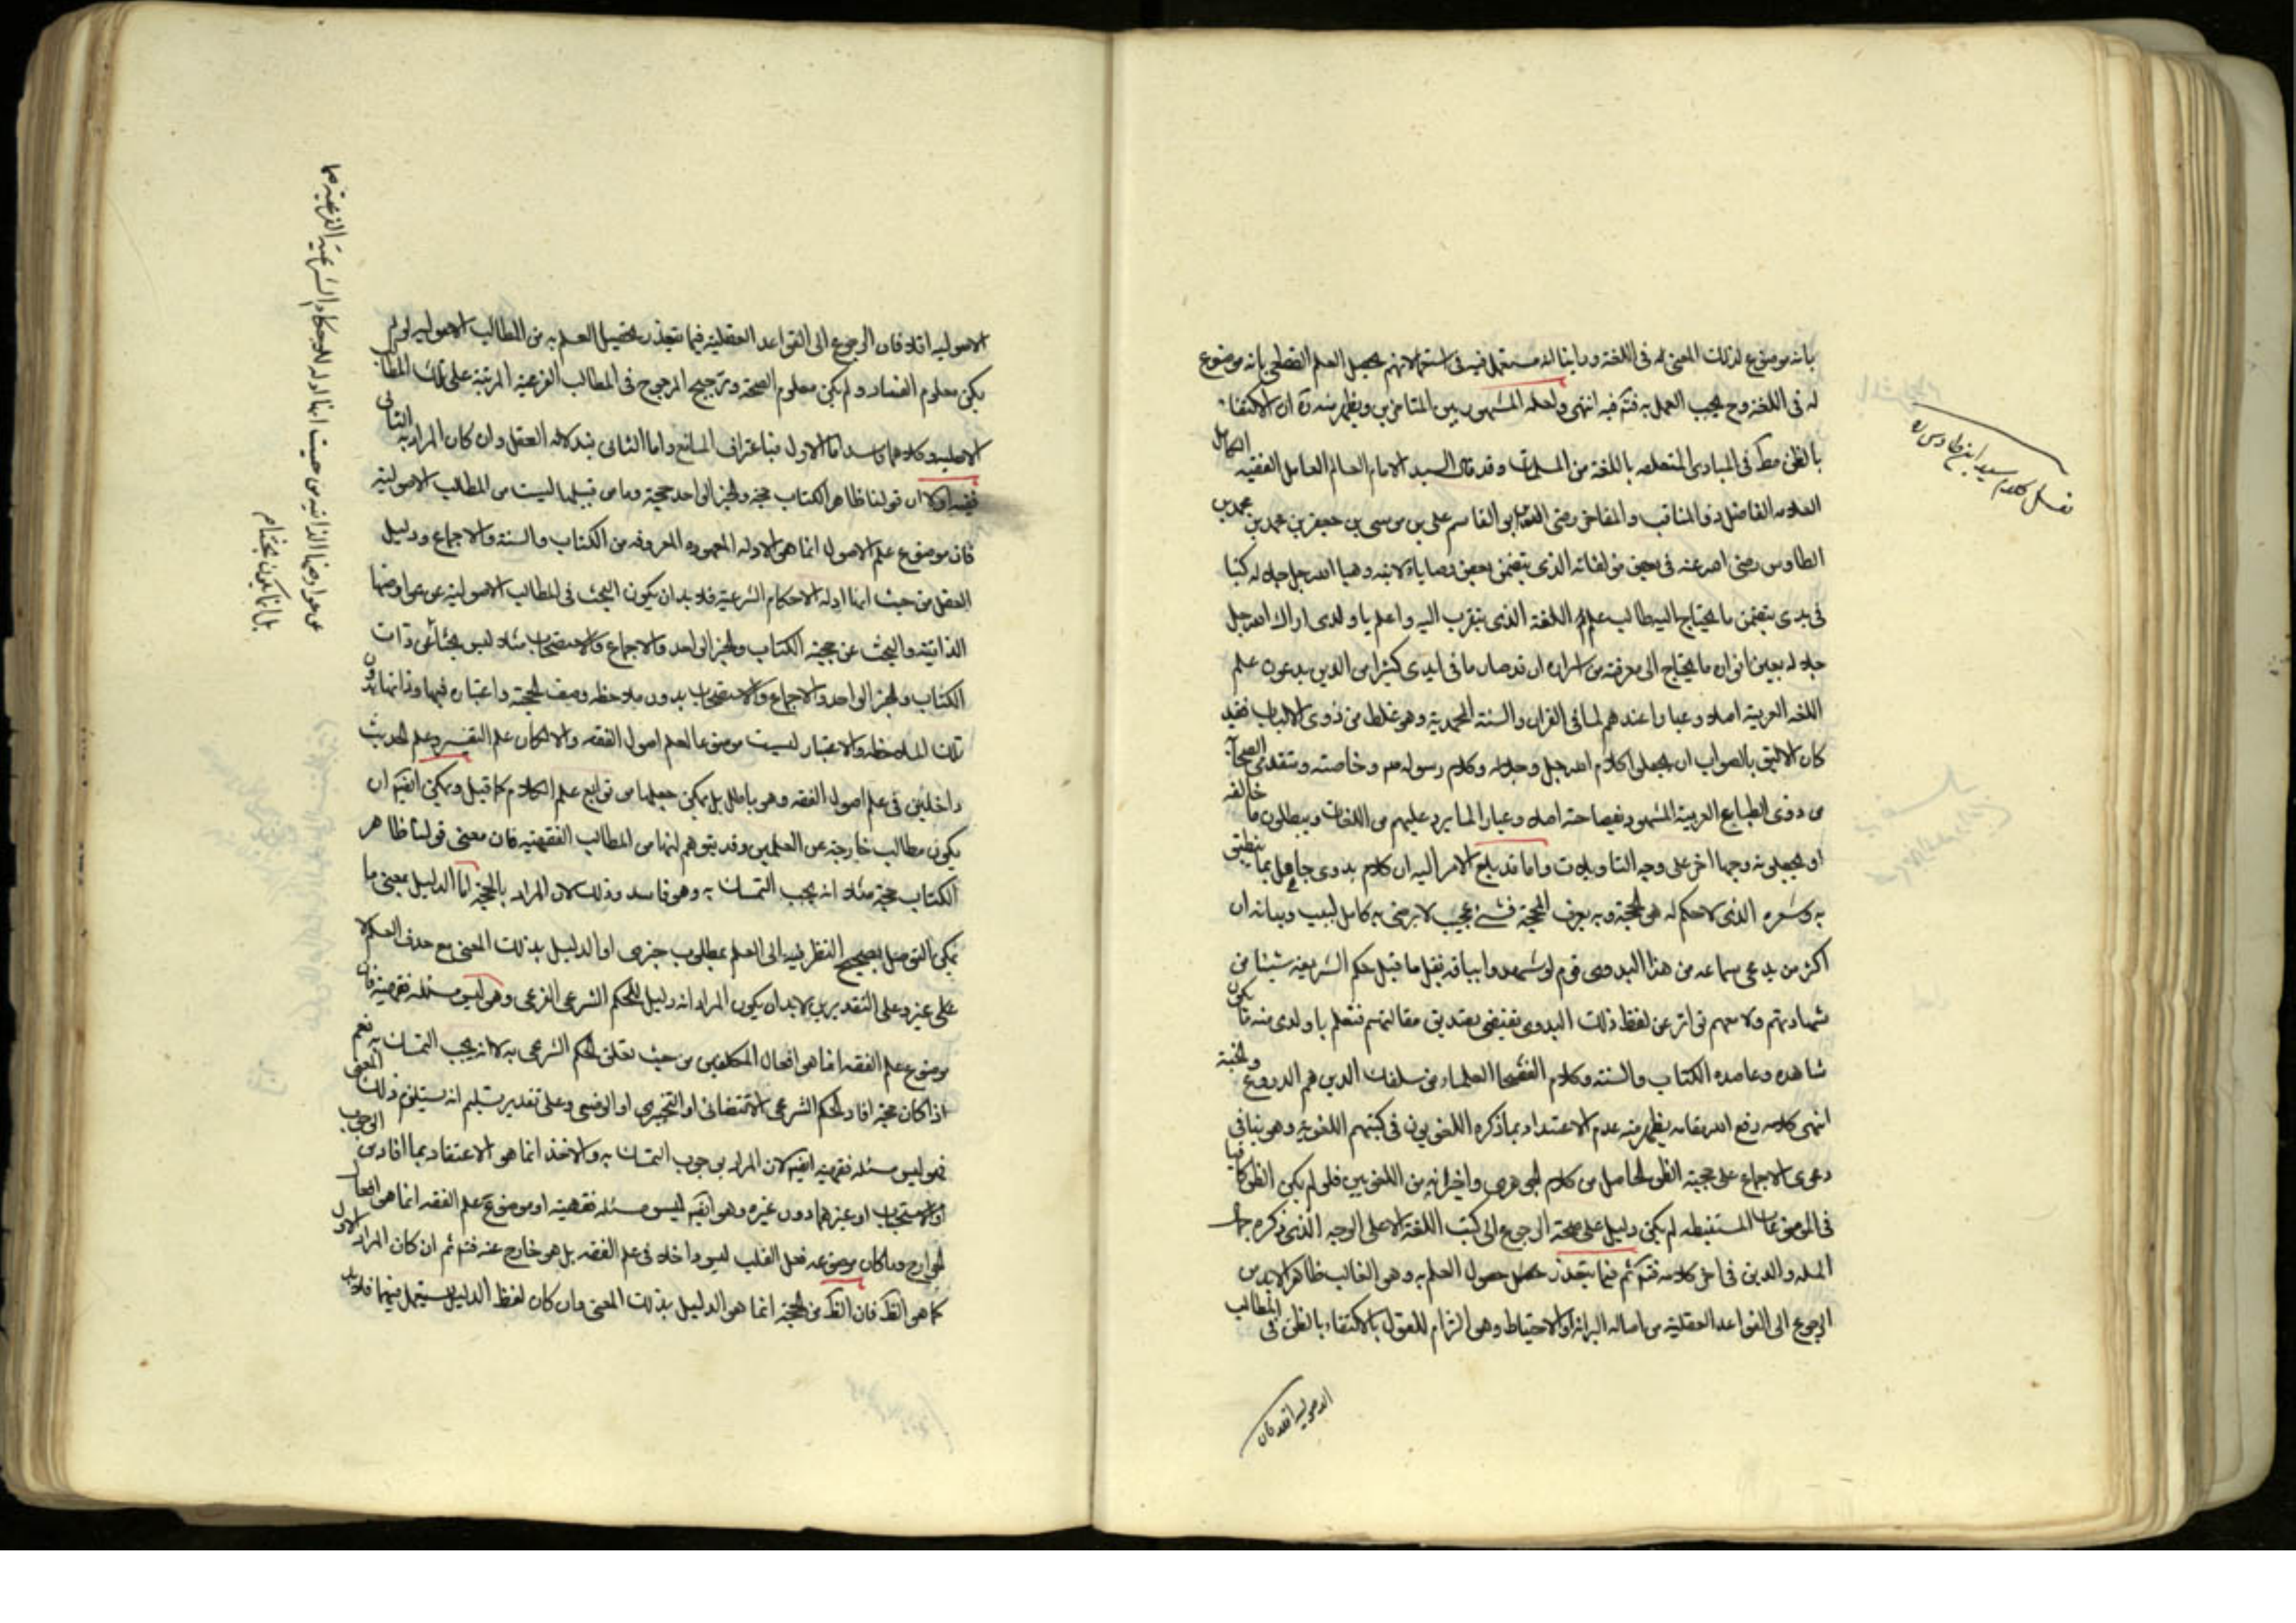 بانه موضوع لذلك المعنى له فى اللغة وراينا انه مستعمل فيه فى استعمالاتهم يحصل العلم القطعى بانه موضوع
له فى اللغة وح يجب العمل به فتم فيه انتهى ولعله المشهور بين المتاخرين ويظهر منه ان الاكتفاء
بالظن مط فى المبادى المتعلقه باللغة من المسلمات وقد قال السيد الامام العالم العامل الفقيه الكامل
العلامه الفاضل ذو المناقب والمفاخر رضى ابو القاسم على بن موسى بن جعفر بن محمد بن محمد بن
الطاوس رضى الله عنه فى بعض مؤلفاته الذى يتضمن بعض وصاياه لابنه وهيا الله جل جلاله كتبا
فى يدى يتضمن ما يحتاج اليه طالب علم اللغة الذى يتقرب اليه واعلم يا ولدى اراك الله جل
جلاله بعين ما يحتاج الى معرفته من اسراره ان قد صار ما فى ايدى كثيرا من الذين يدعون علم
اللغه العربية اصلا وعيارا عندهم لما فى القران والسنة المحمدية وهو غلط من ذوى الالباب فقد
كان الاليق بالصواب ان يجعلوا كلام الله جل وجلاله وكلام رسوله صم وخاصته ومتقدمى الصحابة
من ذوى الطبايع العربية المشهود بفصاحته اصلا وعيارا لما يرد عليهم من اللغات ويبطلون ما خالفه
او يجعلونه وجها اخر على وجه التاويلات واما قد بلغ الامر اليه ان كلام بدوى جاهل بما ينطق
به وشعره الذى لا حكم له هو الحجة وبه يعرف الحجة فشئ عجيب لا يرضى به كامل لبيب وبيانه ان
اكثر من يدعى سماعه من هذا البدوى قوم لو شهدوا بباقة بقل ما قبل حكم الشريعة شيئا من
شهادتهم ولا معهم تواتر عن لفظ ذلك البدوى يقتضى بصديق مقالتهم فتعلم يا ولدى منه ما يكون
شاهده وعاضده الكتاب والسنة وكلام الفصحا العلماء من سلفك الذين هم الدروع والجنة
انتهى كلامه رفع الله مقامه يظهر منه عدم الاعتداد بما ذكره اللغويون فى كتبهم اللغوية وهو ينافى
دعوى الاجماع على حجية الظن الحاصل من كلام الجوهرى واضرابه من اللغويين فلو لم يكن الظن كافيا
فى الموضوعات المستنبطه لم يكن دليل على صحة الرجوع الى كتب اللغة الا على الوجه الذى ذكره جمال
المله والدين فى اخر كلامه فتم ثم فيما يتعذر حصول العلم به وهو الغالب ظاهرا لابد من
الرجوع الى القواعد العقلية من اصاله البرائة او الاحتياط وهو الزام للقول بالاكتفاء بالظن فى المطالب
الاصوليه افلا فان
نقل كلام سيد ابن طاوس ره
الاصوليه افلا فان الرجوع الى القواعد العقلية فيما يتعذر تحصيل العلم به من المطالب الاصوليه لو لم
يكن معلوم الفساد ولم يكن معلوم الصحة وترجيح المرجوح فى المطالب الفرعية المرتبة على تلك المطالب
الاصليه وكلاهما فاسد اما الاول فباعتراف المانع واما الثانى فبدلاله العقل وان كان المراد به الثانى
ففيه اولا ان قولنا ظاهر الكتاب حجة والخبر الواحد حجية وما من قبيلها ليست من المطالب الاصولية
فان موضوع علم الاصول انما هو الادله المعهوده المعروفه من الكتاب والسنة والاجماع ودليل
العقل من حيث انها ادله الاحكام الشرعية فلابد ان يكون البحث فى المطالب الاصولية عن عوارضها
الذاتية والبحث عن حجية الكتاب والخبر الواحد والاجماع والاستصحاب مثلا ليس بحثا عن ذات
الكتاب والخبر الواحد والاجماع والاستصحاب بدون ملاحظه وصف الحجية واعتباره فيها وذاتها بدون
تلك الملاحظه والاعتبار ليست موضوعا لعلم اصول الفقه والا لكان علم التفسير وعلم الحديث
داخلين فى علم اصول الفقه وهو باطل بل يمكن جعلها من توابع علم الكلام كما قيل ويمكن ايضا ان
يكون مطالب خارجة عن العلمين وقد يتوهم انها من المطالب الفقهية فان معنى قولنا ظاهر
الكتاب حجية مثلا انه يجب التمسك به وهو فاسد وذلك لان المراد بالحجة اما الدليل بمعنى ما
يمكن التوصل بصحيح النظر فيه الى العلم بمطلوب خبرى او الدليل بذلك المعنى مع حذف العلم لا
على غيره وعلى التقديرين لابد ان يكون المراد انه دليل للحكم الشرعى الفرعى وهو ليس مسئله فقهية فان
موضوع علم الفقه انما هو افعال المكلفين من حيث تعلق الحكم الشرعى به لا انه يجب التمسك به نعم
اذا كان حجة افاد الحكم الشرعى الاقتضائى او التخييرى او الوضعى وعلى تقدير تسليم انه يستلزم ذلك المعنى
فهو ليس مسئله فقهية ايضا لان المراد بوجوب التمسك به والاخذ انما هو الاعتقاد بما افاد من الوجوب
او الاستحباب او غيرهما دون غيره وهو ايضا ليس مسئله فقهية اذ موضوع علم الفقه انما هو افعال
الجوارح وما كان موضوعه فعل القلب ليس داخلا فى علم الفقه بل هو خارج عنه فتم ثم ان كان المراد الاول
كما هو الظ فان الظ من الحجة انما هو الدليل بذلك المعنى وان كان لفظ الدليل يستعمل فيهما فلابد
عن عوارضها الذاتية من حيث انها ادله للاحكام الشرعية الفرعية مما